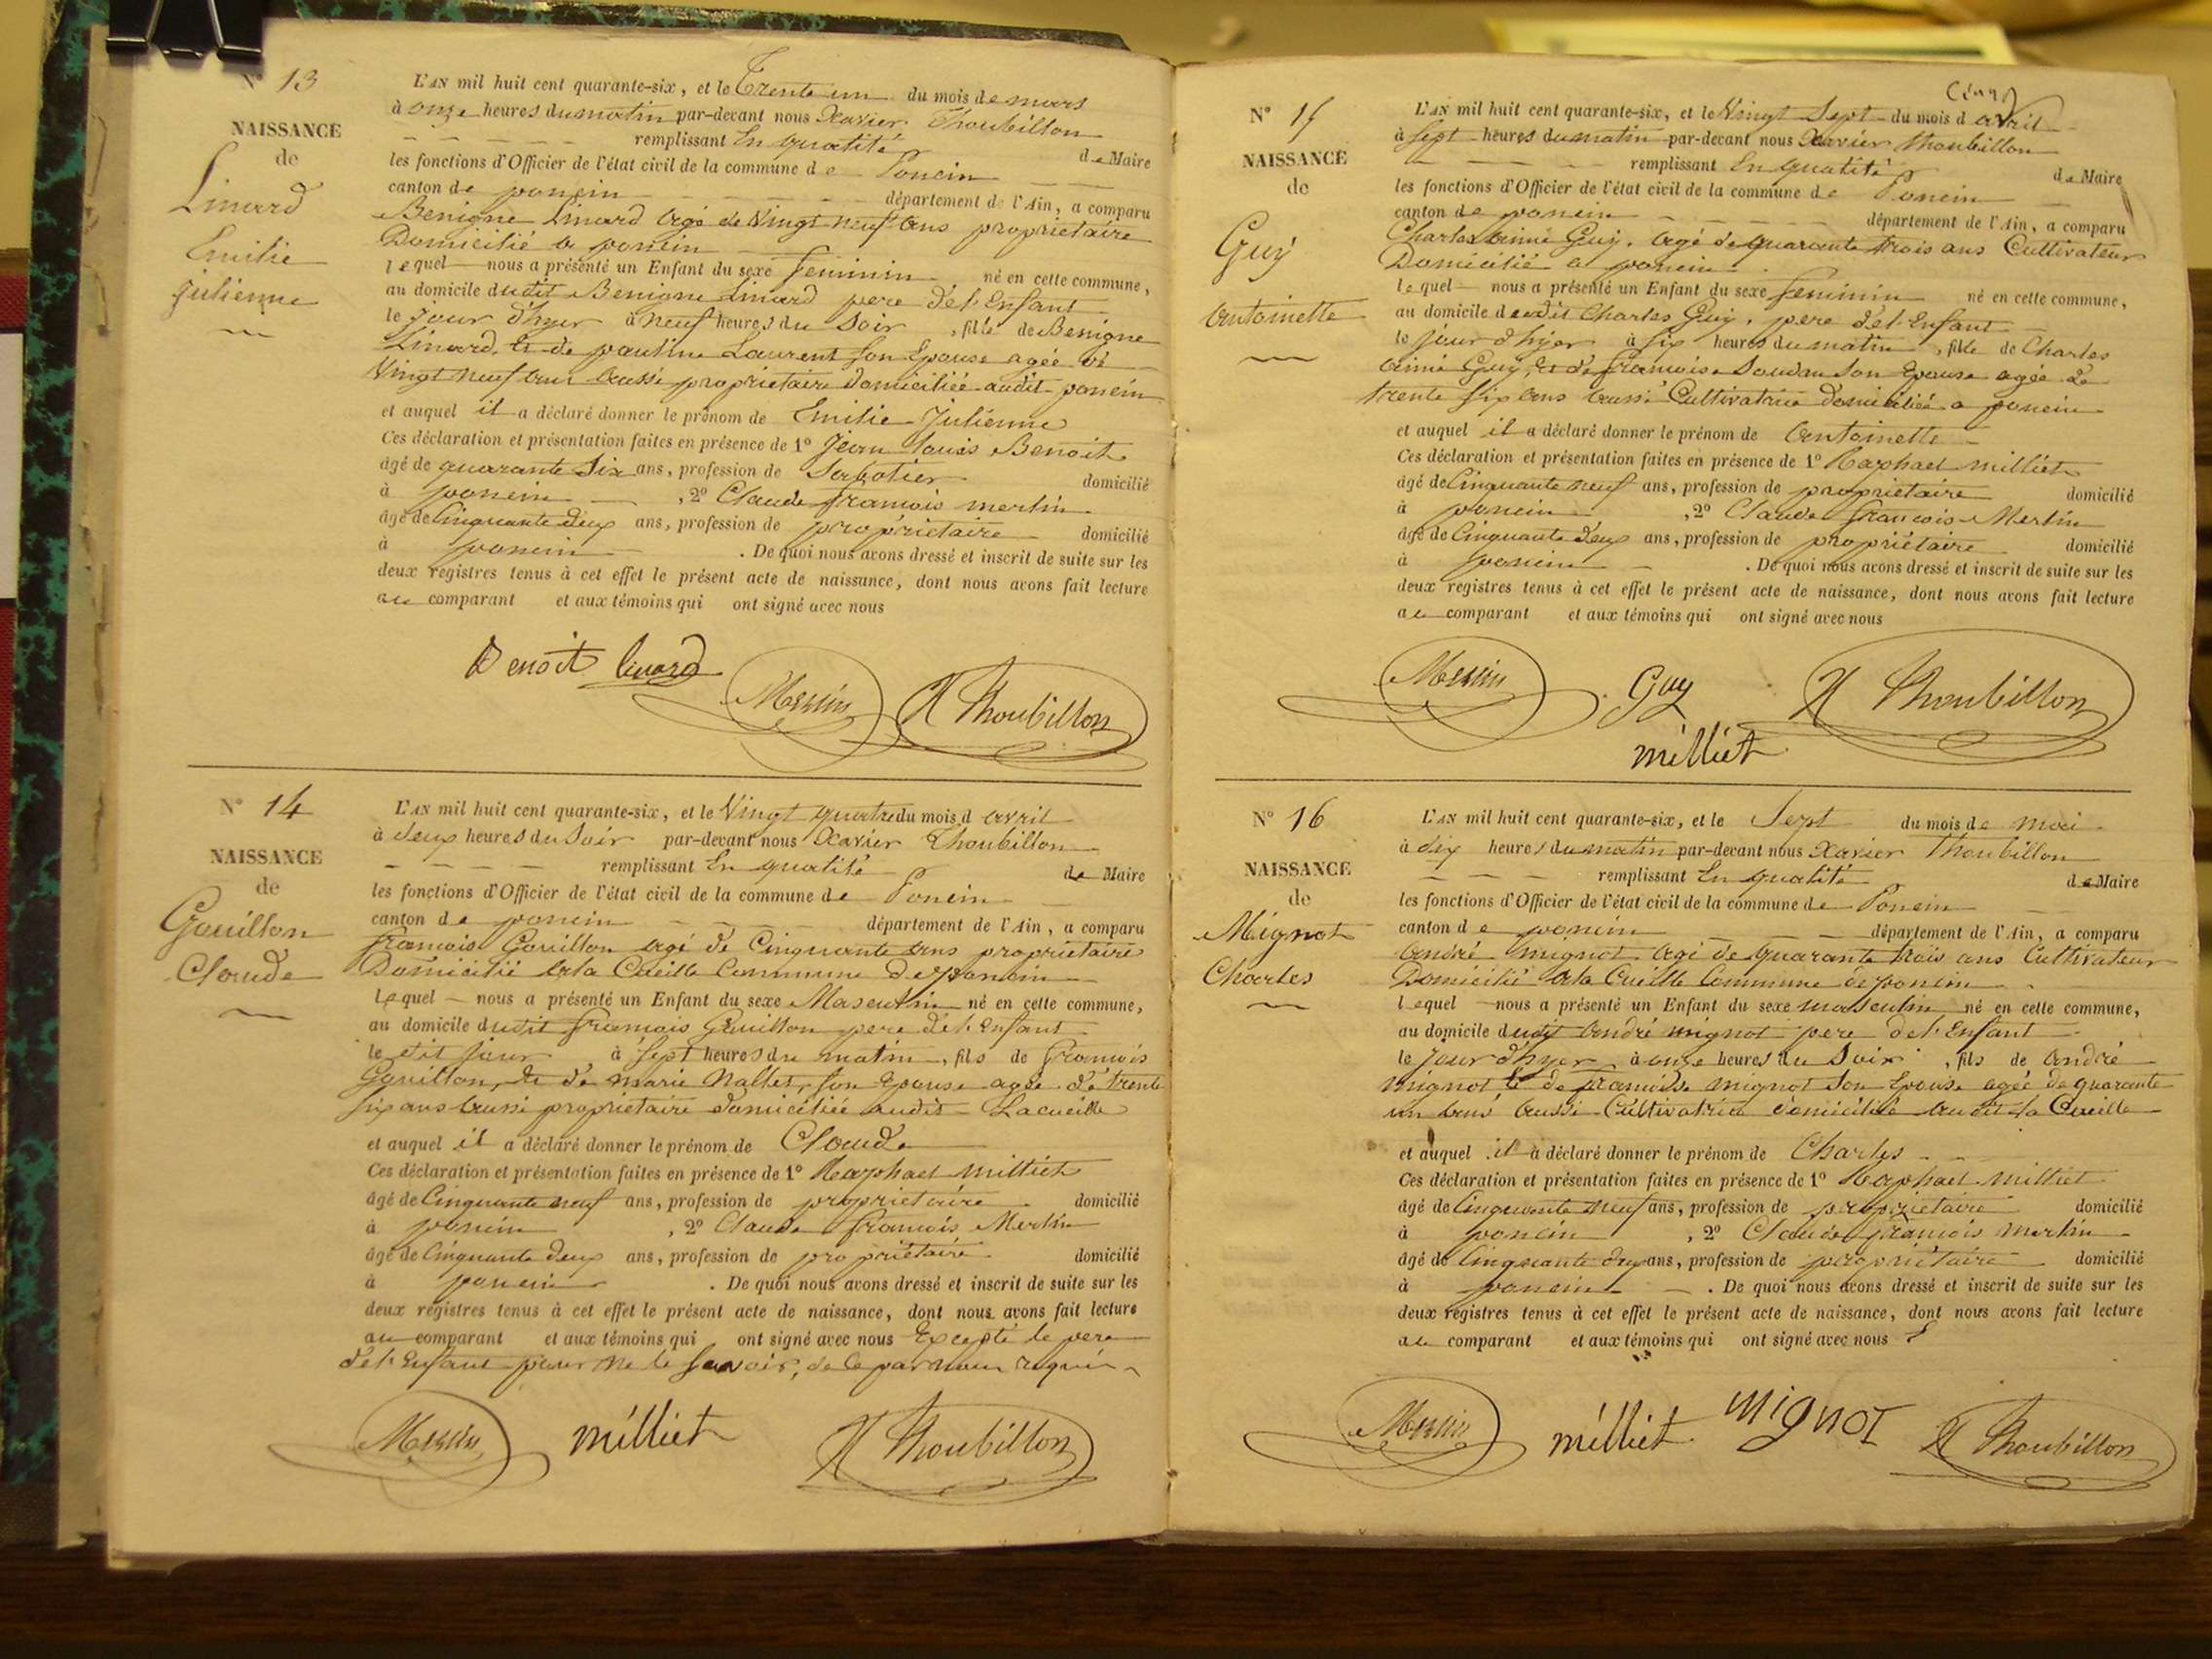 N° 13
NAISSANCE
de
Linard
Emilie
Julienne
L'AN mil huit cent quarante-six, et le Trente un du mois de mars
à onze heures du matin par-devant nous Xavier Thoubillon
remplissant En qualité de Maire
les fonctions d'Officier de l'état civil de la commune de Poncin
canton de poncin département de l'Ain, a comparu
Benigne Linard agé de Vingt neuf ans propriétaire
Domicilié a poncin
lequel nous a présenté un Enfant du sexe feminin né en cette commune,
au domicile dudit Benigne Linard pere de l'Enfant
le jour d'hyer à neuf heures du Soir, fille de Benigne
Linard, et de pauline Laurent son Epouse agée de
Vingt neuf ans aussi propriétaire domiciliée audit poncin
et auquel il a déclaré donner le prénom de Emilie Julienne
Ces déclaration et présentation faites en présence de 1° Jean Louis Benoit
âgé de quarante Six ans, profession de Sabotier domicilié
à poncin, 2° Claude françois merlin
âgé de Cinquante deux ans, profession de propriétaire domicilié
à poncin. De quoi nous avons dressé et inscrit de suite sur les
deux registres tenus à cet effet le présent acte de naissance, dont nous avons fait lecture
au comparant et aux témoins qui ont signé avec nous
Benoit Linard Merlin X Thoubillon
N° 14
NAISSANCE
de
Gouillon
Claude
L'AN mil huit cent quarante-six, et le Vingt quatre du mois d avril
à deux heures du Soir par-devant nous Xavier Thoubillon
remplissant En qualité de Maire
les fonctions d'Officier de l'état civil de la commune de Poncin
canton de poncin département de l'Ain, a comparu
françois Gouillon agé de Cinquante ans propriétaire
Domicilié a la Cueille Commune de poncin
lequel nous a présenté un Enfant du sexe Masculin né en cette commune,
au domicile dudit françois Gouillon pere de l'Enfant
le dit jour à Sept heures du matin, fils de françois
Gouillon, et de marie Nallet, son Epouse agée de trente
six ans aussi propriétaire domiciliée audit Lacueille
et auquel il a déclaré donner le prénom de Claude
Ces déclaration et présentation faites en présence de 1° Raphael Milliet
âgé de Cinquante neuf ans, profession de propriétaire domicilié
à poncin, 2° Claude françois Merlin
âgé de Cinquante deux ans, profession de propriétaire domicilié
à poncin. De quoi nous avons dressé et inscrit de suite sur les
deux registres tenus à cet effet le présent acte de naissance, dont nous avons fait lecture
au comparant et aux témoins qui ont signé avec nous Excepté le pere
de l'Enfant pour ne le savoir, de ce par nous requis
Merlin milliet X Thoubillon
N° 15
NAISSANCE
de
Guy
antoinette
L'AN mil huit cent quarante-six, et le Vingt Sept du mois d avril
à sept heures du matin par-devant nous Xavier thoubillon
remplissant En qualité de Maire
les fonctions d'Officier de l'état civil de la commune de Poncin
canton de poncin département de l'Ain, a comparu
Charles aimé Guy, agé de quarante trois ans Cultivateur
Domicilié a poncin
lequel nous a présenté un Enfant du sexe feminin né en cette commune,
au domicile dudit Charles Guy, pere de l'Enfant
le jour d'hyer à six heures du matin, fille de Charles
aimé Guy, et de françoise Soudan Son Epouse agée de
trente six ans aussi Cultivatrice domiciliée a poncin
et auquel il a déclaré donner le prénom de antoinette
Ces déclaration et présentation faites en présence de 1° Raphael milliet
âgé de Cinquante neuf ans, profession de propriétaire domicilié
à poncin, 2° Claude françois Merlin
âgé de Cinquante deux ans, profession de propriétaire domicilié
à poncin. De quoi nous avons dressé et inscrit de suite sur les
deux registres tenus à cet effet le présent acte de naissance, dont nous avons fait lecture
au comparant et aux témoins qui ont signé avec nous
Merlin Guy X Thoubillon
milliet
N° 16
NAISSANCE
de
Mignot
Charles
L'AN mil huit cent quarante-six, et le Sept du mois de mai
à dix heures du matin par-devant nous Xavier Thoubillon
remplissant En qualité de Maire
les fonctions d'Officier de l'état civil de la commune de Poncin
canton de poncin département de l'Ain, a comparu
andré mignot agé de quarante trois ans Cultivateur
Domicilié a la Cueille Commune de poncin
lequel nous a présenté un Enfant du sexe masculin né en cette commune,
au domicile dudit andré mignot pere de l'Enfant
le jour d'hyer à onze heures du Soir, fils de andré
mignot et de françoise mignot Son Epouse agée de quarante
un ans aussi Cultivatrice domiciliée audit la Cueille
et auquel il a déclaré donner le prénom de Charles
Ces déclaration et présentation faites en présence de 1° Raphael milliet
âgé de Cinquante neuf ans, profession de propriétaire domicilié
à poncin, 2° Claude françois merlin
âgé de Cinquante deux ans, profession de propriétaire domicilié
à poncin. De quoi nous avons dressé et inscrit de suite sur les
deux registres tenus à cet effet le présent acte de naissance, dont nous avons fait lecture
au comparant et aux témoins qui ont signé avec nous
Merlin milliet mignot X Thoubillon